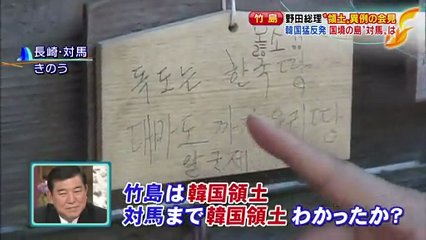 竹島
野田総理"領土"異例の会見
韓国猛反発 国境の島"対馬"は
長崎・対馬
きのう
독도는 한국땅
대마도 까지 우리땅
竹島は韓国領土
対馬まで韓国領土 わかったか?